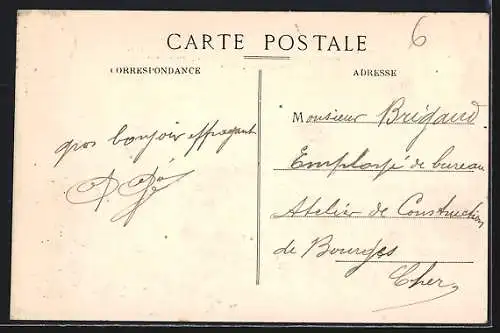 6
CARTE POSTALE
CORRESPONDANCE
ADRESSE
gros bonjour
Monsieur Brigaud
Employé de bureau
Atelier de Construction
de Bourges
Cher